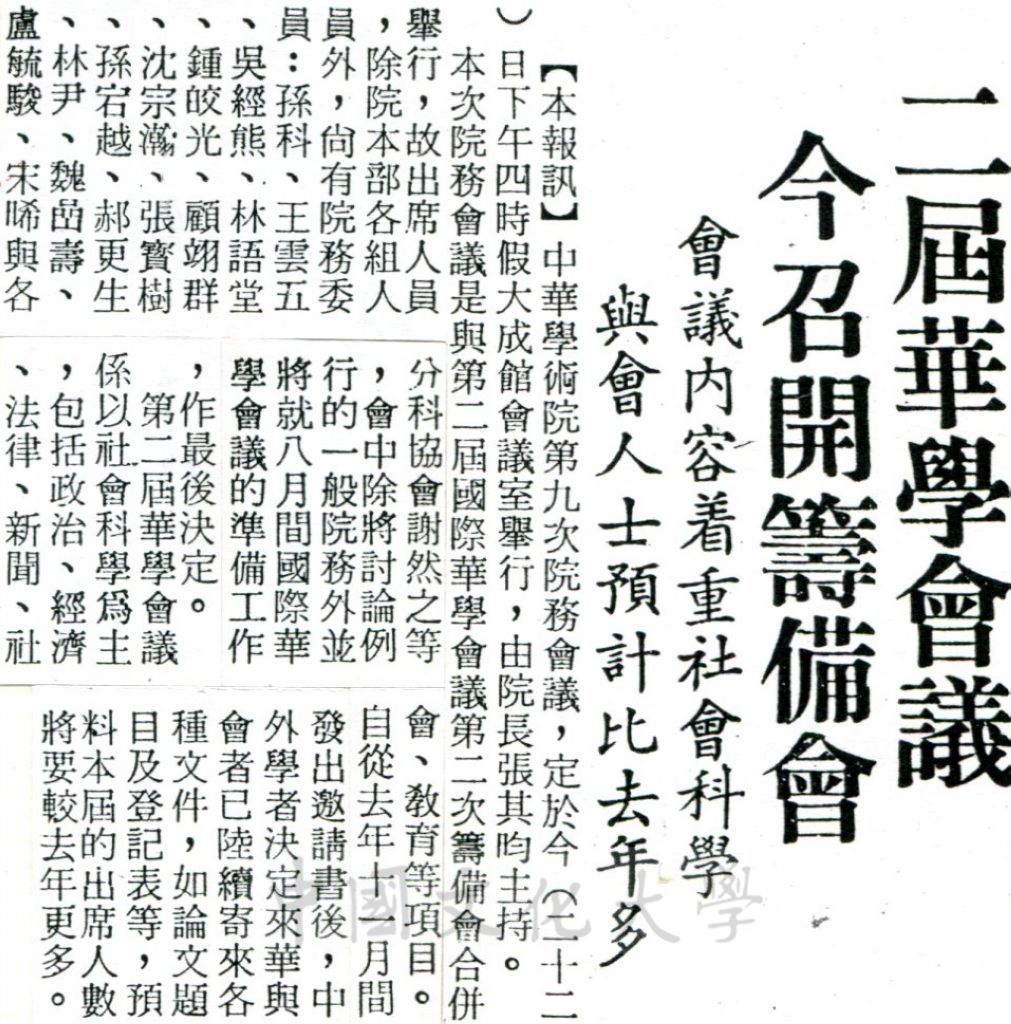 二屆華學會議
今召開籌備會
會議內容着重社會科學
與會人士預計比去年多
【本報訊】中華學術院第九次院務會議，定於今（二十二
）日下午四時假大成館會議室舉行，由院長張其昀主持。
本次院務會議是與第二屆國際華學會議第二次籌備會合併
舉行，故出席人員
，除院本部各組人
員外，尚有院務委
員：孫科、王雲五
、吳經熊、林語堂
、鍾皎光、顧翊群
、沈宗瀚、張寶樹
、孫宕越、郝更生
、林尹、魏嵒壽、
盧毓駿、宋晞與各
分科協會謝然之等
，會中除將討論例
行的一般院務外並
將就八月間國際華
學會議的準備工作
，作最後決定。
第二屆華學會議
係以社會科學爲主
，包括政治、經濟
、法律、新聞、社
會、教育等項目。
自從去年十一月間
發出邀請書後，中
外學者決定來華與
會者已陸續寄來各
種文件，如論文題
目及登記表等，預
料本屆的出席人數
將要較去年更多。
中國文化大學